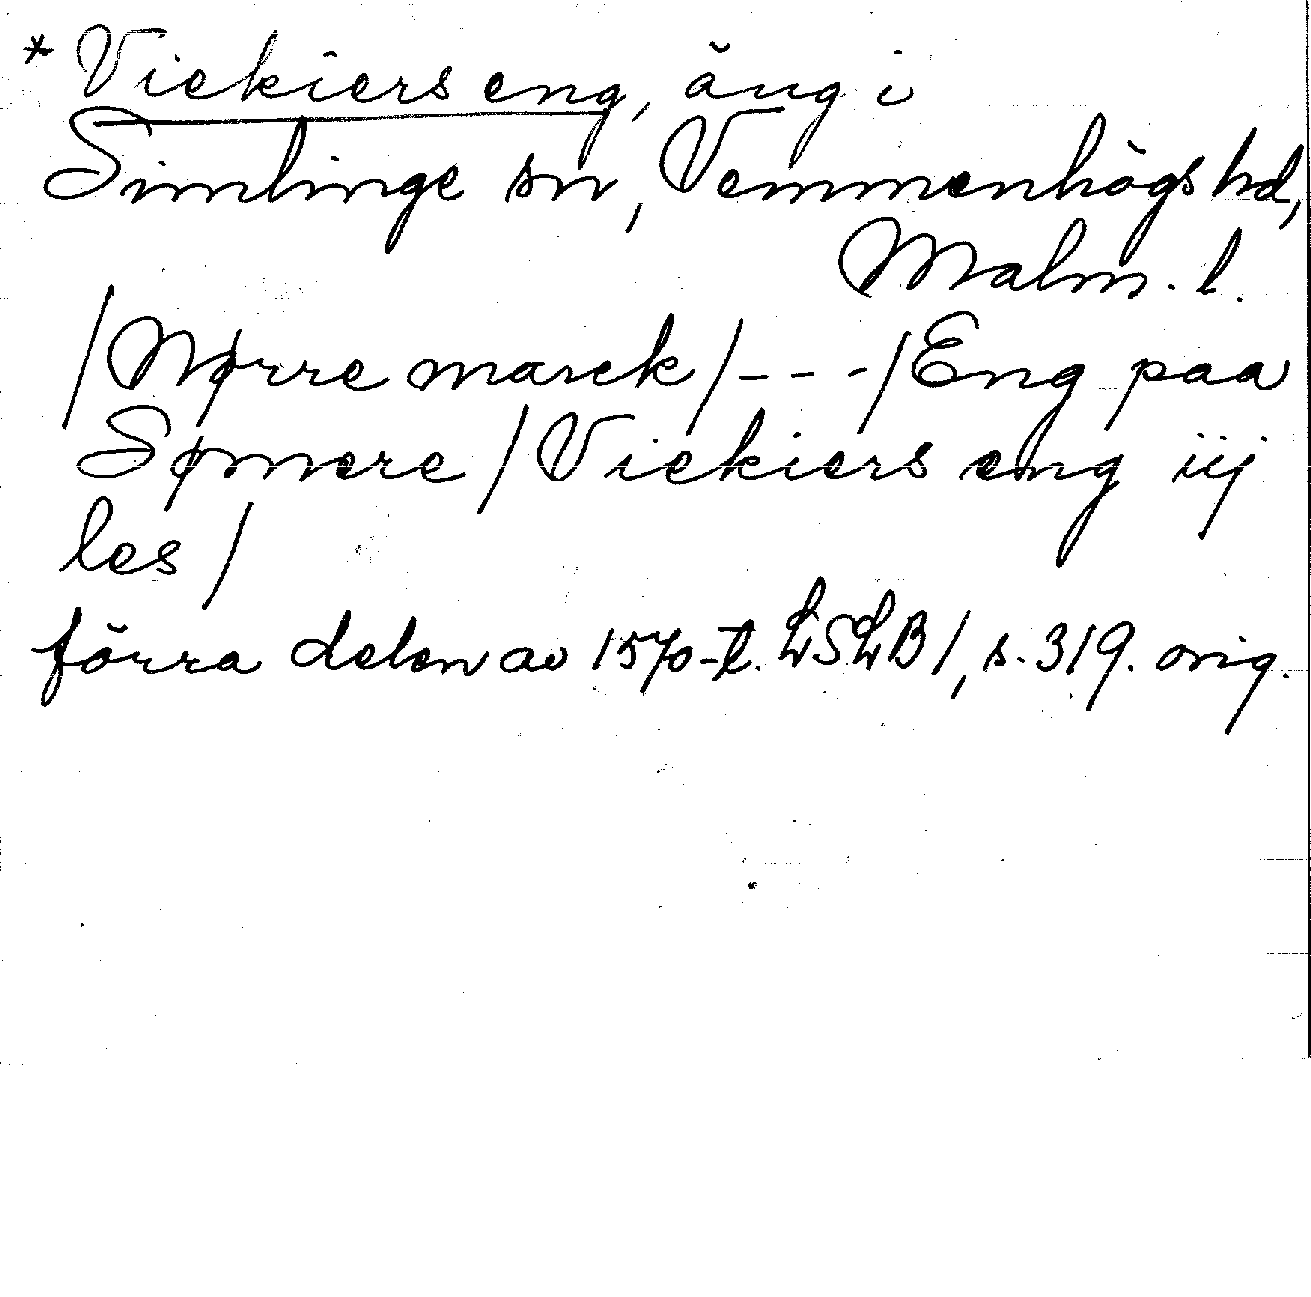 * Viekiers eng, äng i
Simlinge sn, Vemmenhögs hd,
Malm. l.
/Nørre marck/---/Eng paa
Sømere/Viekiers eng iij
les/
förra delen av 1570-t. LSLB1, s. 319. orig.